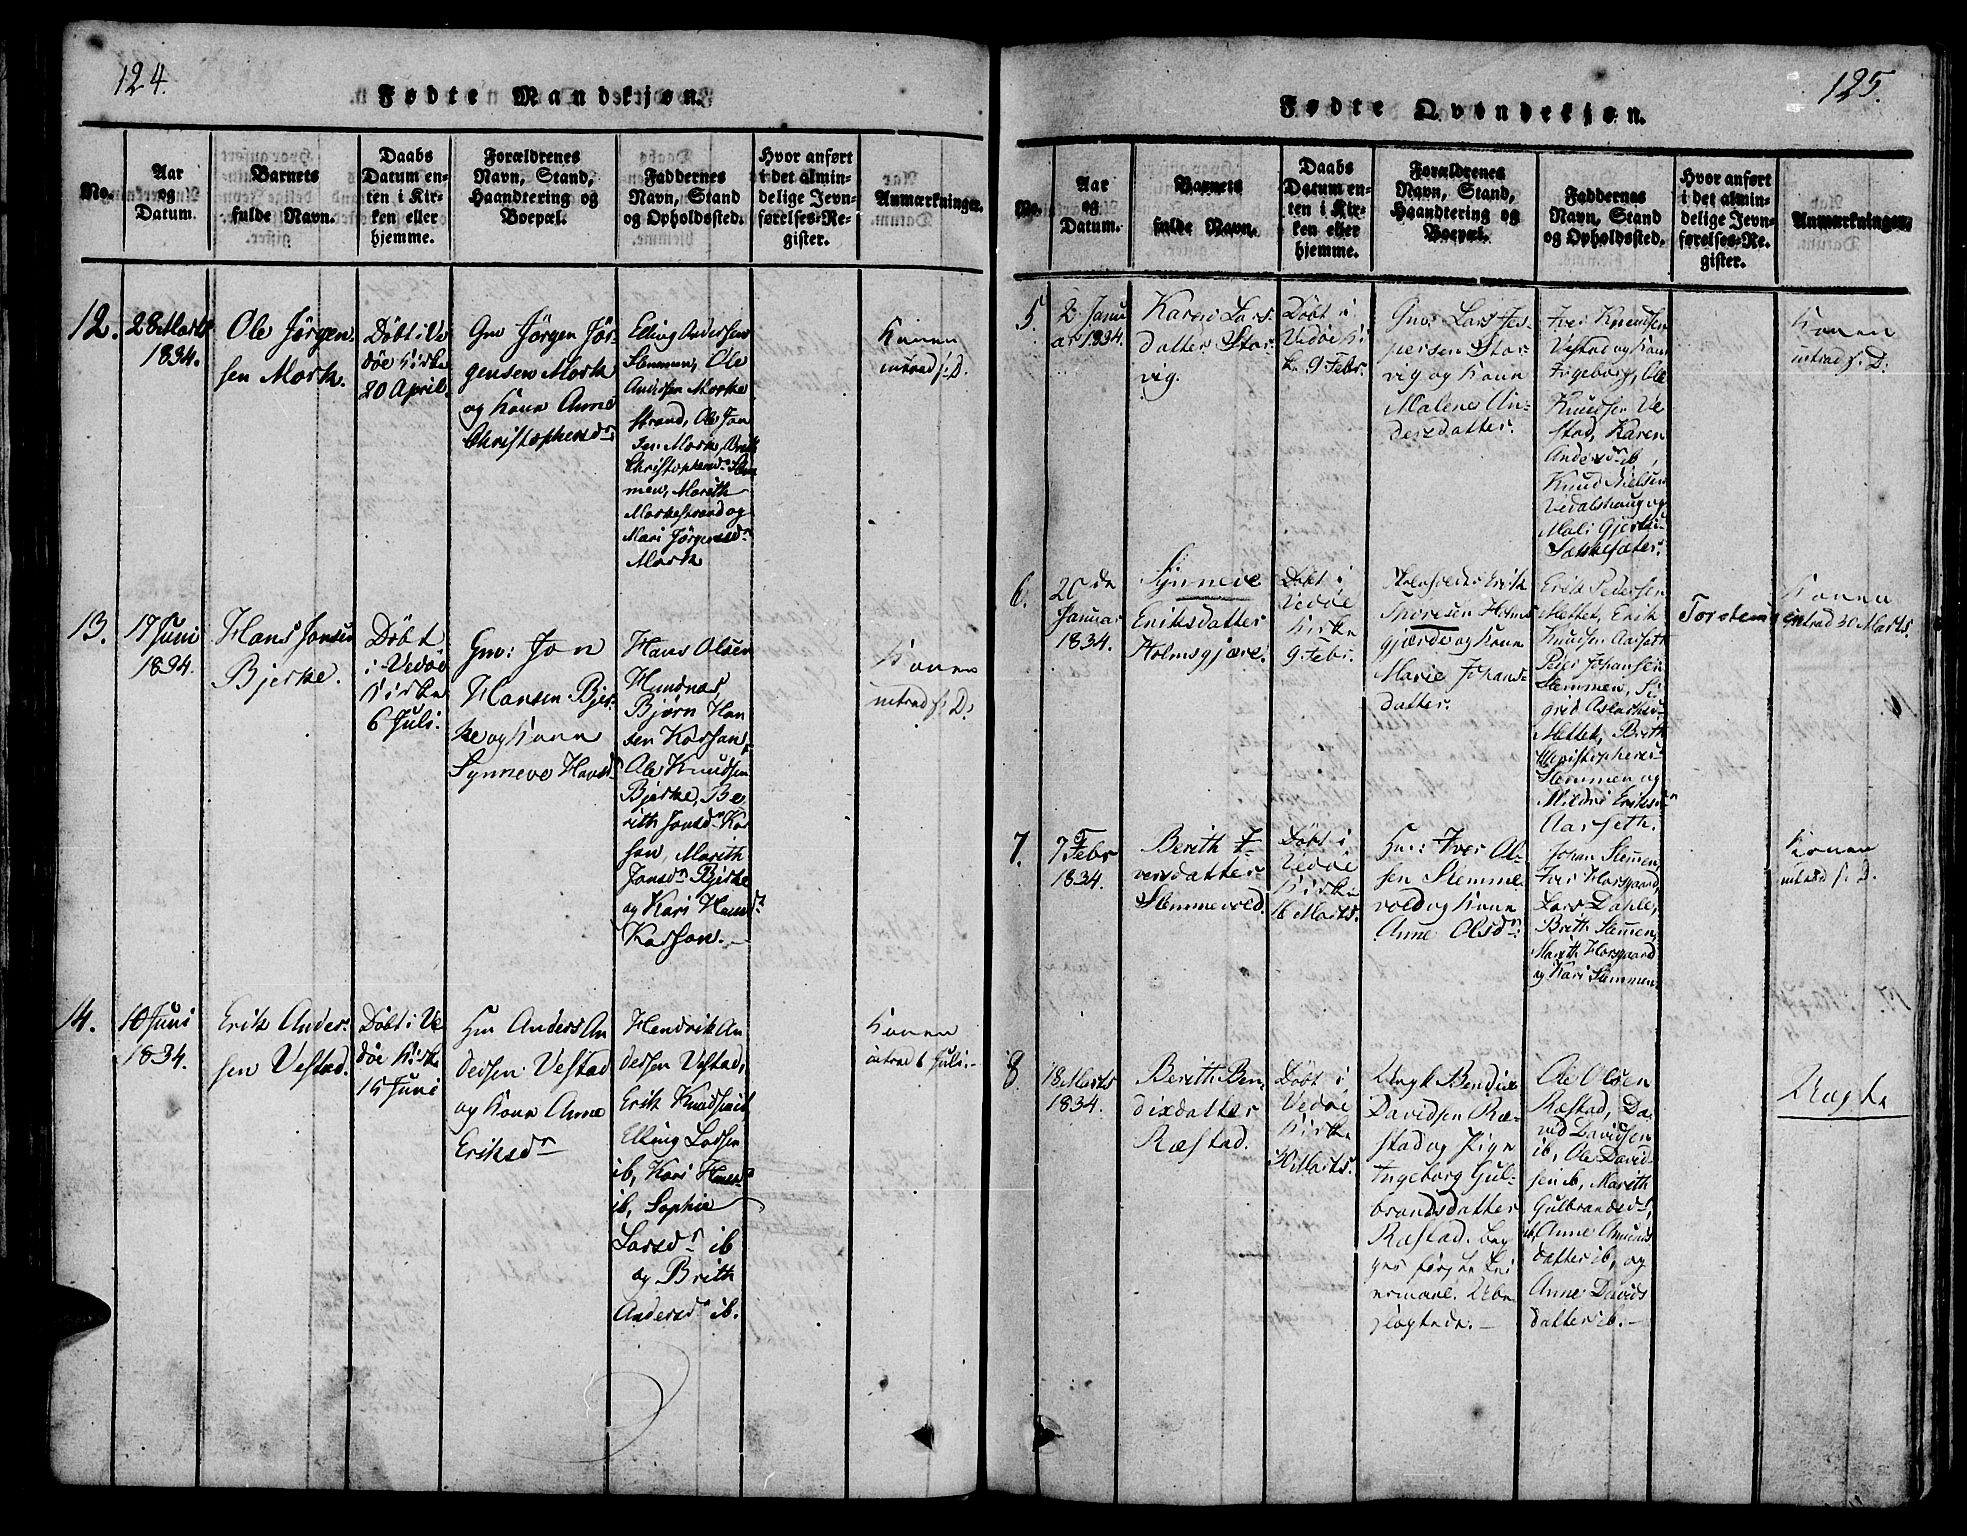 124.
Fødte Mandskjøn.
No.
Aar
og
Datum.
Barnets
fulde Navn.
Daabs
Datum en-
ten i Kir-
ken eller
hjemme.
Forældrenes
Navn, Stand,
Haandtering og
Boepæl.
Faddernes
Navn, Stand
og Opholdssted.
Hvor anført
i det almin-
delige Jevn-
førelses-Re-
gister.
Anmærkninger.
12.
28 Marts
1834.
Ole Jørgen-
sen Mork.
Døbt i Ve-
døe Kirke
20 April.
Gm Jørgen Jør-
gensen Mork
og Kone Anne
Christophersdr
Elling Andersen
Stemmen, Ole
Andersen Morke
strand, Ole Jon
sen Mork, Brith
Christophersdr Stem
men, Marith
Morkestrand og
Mari Jørgensdr
Mork
Konen
introd s: D.
13.
17 Juni
1834.
Hans Jonsen
Bjerke.
Døbt
i Vedøe
Kirke
6 Juli.
Gm: Jon
Hansen Bjer-
ke og Kone
Synneve Hansd
Hans Olsen
Hundnæs,
Bjørn Han
sen Korsan,
Ole Knudsen
Bjerke, Be
rith Jonsdr Kor
san, Marith
Jonsdr Bjerke
og Kari Hansdr
Korsan.
Konen
introd s: D:
14.
10 Juni
1834.
Erik Ander-
sen Vestad.
Døbt i Ve
døe Kirke
15 Juni
Hm Anders An
dersen Vestad
og Kone Anne
Eriksdr
Hendrik An
dersen Vestad,
Erik Knudsen ib,
Elling Larsen
ib, Kari Hansd
ib, Sophie
Larsdr ib
og Brith
Andersdr ib.
Konen
introd 6 Juli.
125.
Fødte Qvindekjøn.
No.
Aar
og
Datum.
Barnets
fulde Navn.
Daabs
Datum en-
ten i Kir-
ken eller
hjemme.
Forældrenes
Navn, Stand,
Haandtering og
Boepæl.
Faddernes
Navn, Stand
og Opholdssted.
Hvor anført
i det almin-
delige Jevn-
førelses-Re-
gister.
Anmærkninger.
5.
2 Janu
ar 1834.
Karen Lars
datter Stor
vig.
Døbt i
Vedøe Kir
ke 9 Febr.
Gm: Lars Jes-
persen Stor-
vig og Kone
Malene An-
dersdatter.
Iver Knudsen
Vestad og Kone
Ingeborg, Ole
Knudsen Ve
stad, Karen
Andersdr ib,
Knud Nielsen
Vedalshaug og
Mali
Konen
introd s: D:
6.
20 de
Januar
1834.
Synneve
Eriksdatter
Holmsgjære.
Døbt i
Vedøe
Kirke
9 Febr.
Erik
Thoresen Holms
gjærde og Kone
Marie Johans-
datter.
Erik Pedersen
Mettet, Erik
Knudsen Aarseth
Peder Johansen
Stemmen, Si
grid
Mettet, Brith
Christophersd
Stemmen og
Mildri Eriksdr
Aarseth.
Torstensen
Konen
introd 30 Marts.
7.
7 Febr
1834.
Berith I-
versdatter
Stemmevold.
Døbt i
Vedøe
Kirke
16 Marts.
Hm: Iver Ol-
sen Stemme
vold og Kone
Anne Olsdr:
Johan Stemmen,
Iver Horsgaard,
Lars Dahle,
Brith Stemmen,
Marith Horsgaard
og Kari Stemmen.
Konen
introd s. D.
8.
18 Marts
1834.
Berith Ben-
dixdatter
Ræstad.
Døbt i
Vedøe
Kirke
30 Marts.
Ungk Bendix
Davidsen Ræ-
stad og Pige
Ingeborg Gul-
brandsdatter
Ræstad. beg
ges første Lei
ermaal.
Ole Olsen
Ræstad, Da
vid Davidsen
ib, Ole David-
sen ib, Marith
Gulbrandsdr
ib, Anne Amunds
datter ib, og
Anne Davids
datter ib.
Uægte